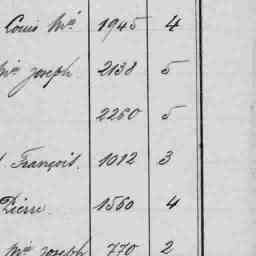 Louis Mie 1945 4
Mie Joseph 2138 5
2260 5
François. 1012 3
Pierre. 1560 4
Mie Joseph 770 2